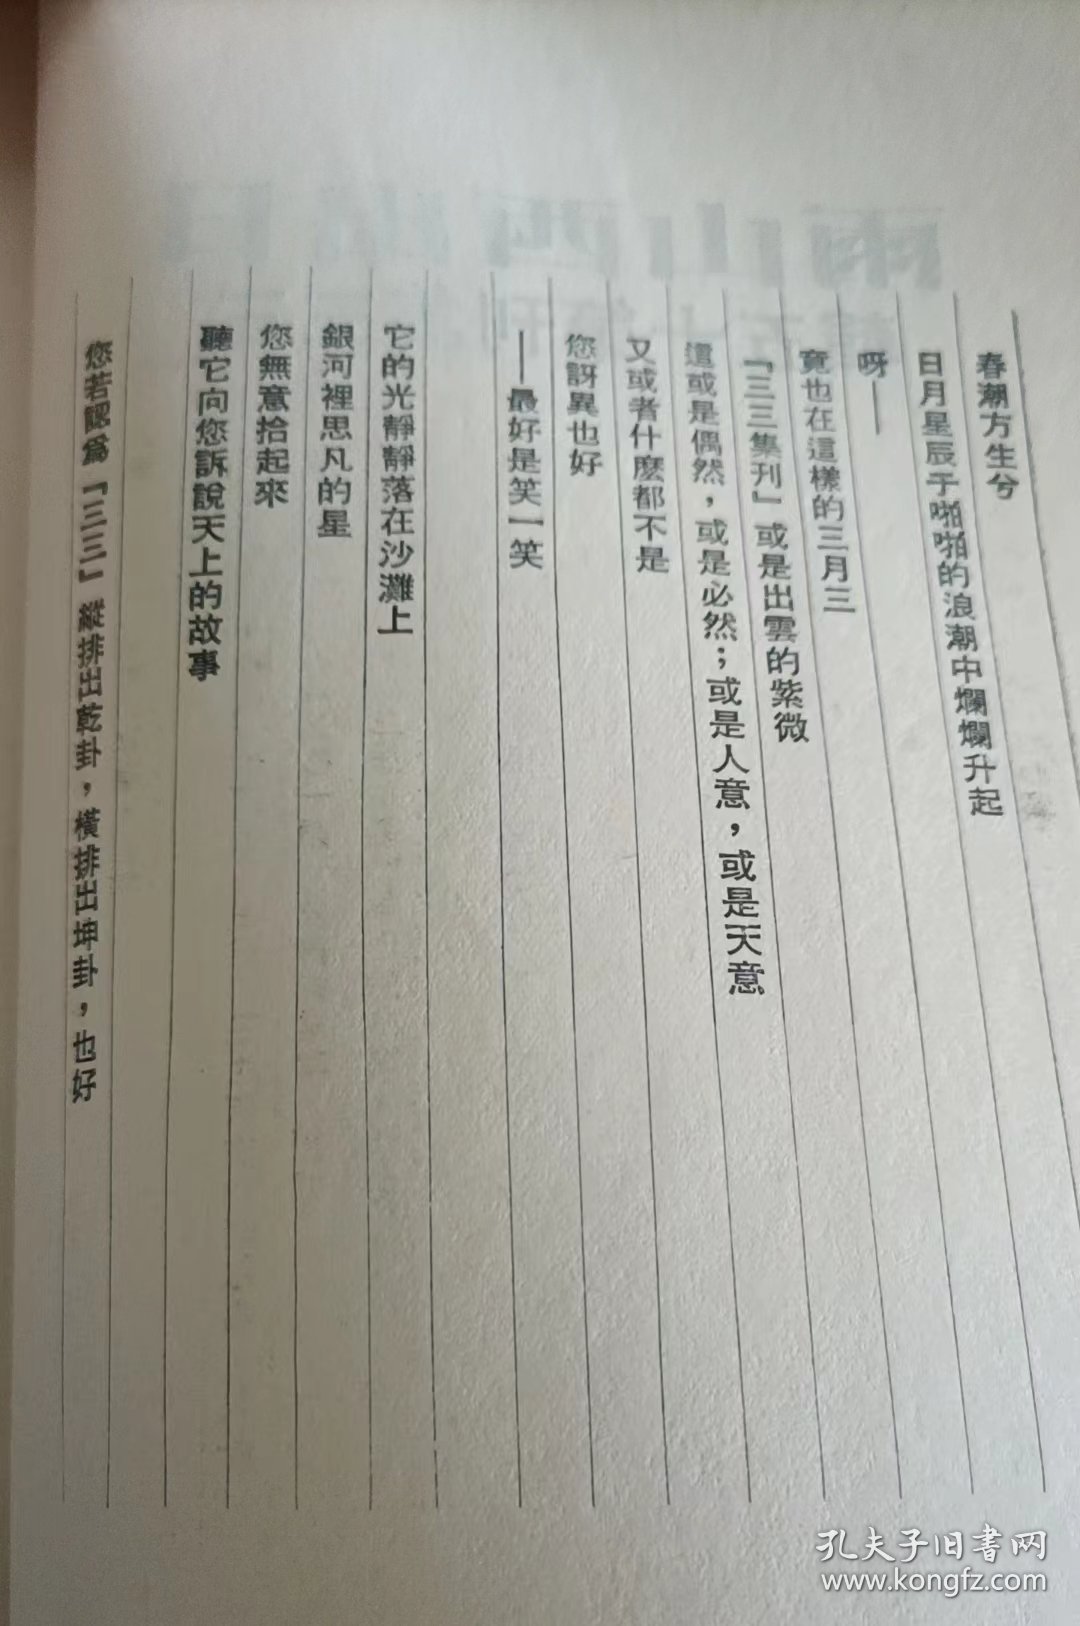 春潮方生兮
日月星辰于啪啪的浪潮中爛爛升起
呀——
竟也在這樣的三月三
「三三集刊」或是出雲的紫微
這或是偶然，或是必然；或是人意，或是天意
又或者什麼都不是
您訝異也好
——最好是笑一笑
它的光靜靜落在沙灘上
銀河裡思凡的星
您無意拾起來
聽它向您訴說天上的故事
您若認爲「三三」縱排出乾卦，橫排出坤卦，也好
孔夫子旧書网
www.kongfz.com